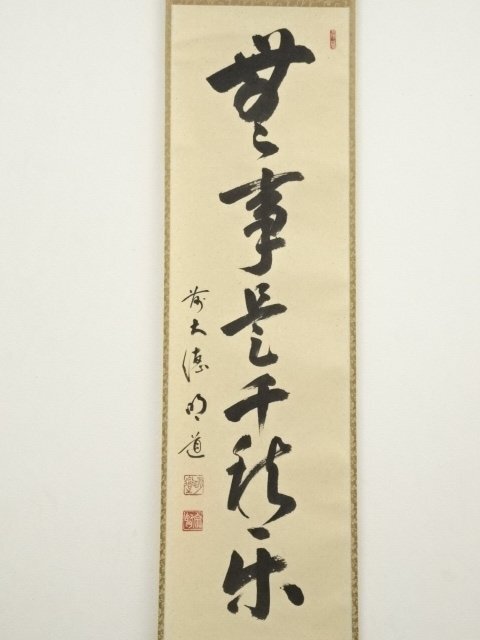 無事是千秋楽
前大徳明道